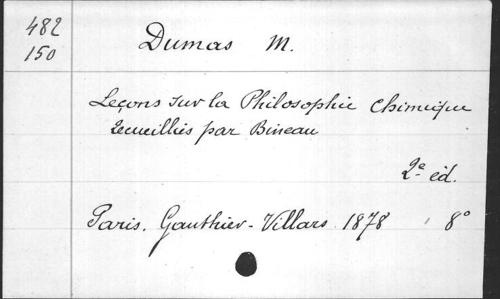 482
150
Dumas M.
Leçons sur la Philosophie chimique
recueillies par Bineau
2e éd.
Paris. Gauthier-Villars 1878 8°